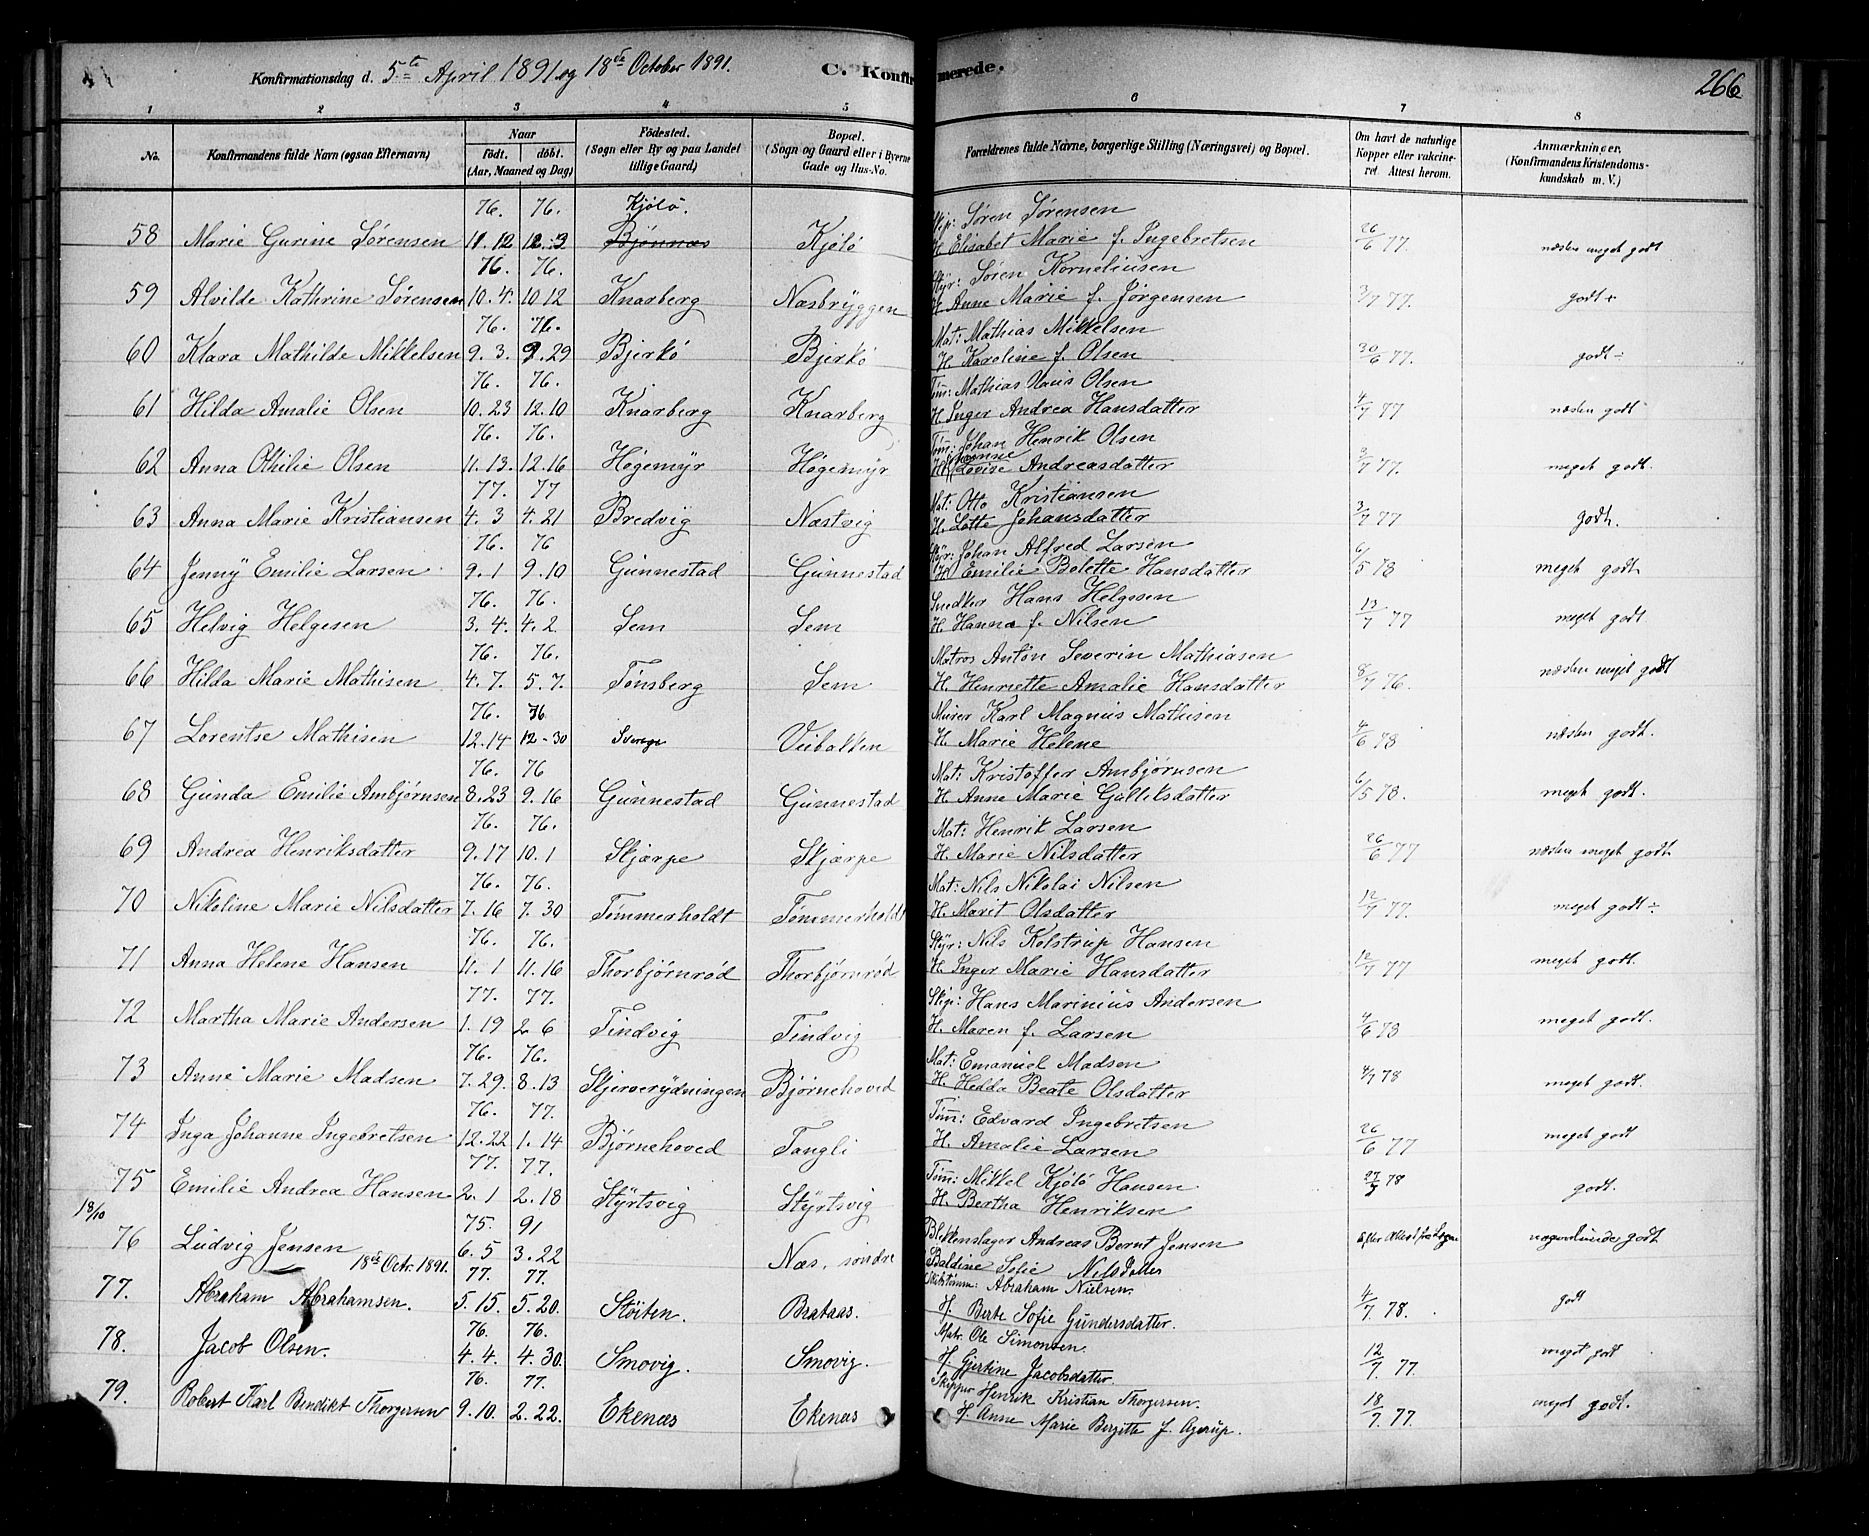 Konfirmationsdag d. 5te April 1891 og 18de October 1891. C. Konfirmerede. 266
1 2 3 4 5 6 7 8
No. Konfirmandens fulde Navn (ogsaa Efternavn) Naar Födt. döbt. (Aar, Maaned og Dag) Födested. (Sogn eller By og paa Landet tillige Gaard) Bopæl. (Sogn og Gaard eller i Byerne Gade og Hus-No. Forældrenes fulde Navne, borgerlige Stilling (Næringsvei) og Bopæl. Om havt de naturlige Kopper eller vakcineret. Attest herom. Anmærkninger. (Konfirmandens Kristendomskundskab m. V.)
76. 76. Kjölö. Skip: Søren Sørensen
58 Marie Gurine Sørensen 11.12 12.3 Bjønnæs Kjölö H. Elisabet Marie f. Ingebretsen 26/6 77. næsten meget godt
76. 76. Styr: Søren Korneliusen
59 Alvilde Kathrine Sørensen 10.4. 10.12 Knarberg Næsbryggen H. Anne Marie f. Jørgensen 3/7 77. godt +
76. 76. Mat: Mathias Mikkelsen
60 Klara Mathilde Mikkelsen 9.3. 9.29 Bjerkö Bjerkö H. Karoline f. Olsen 30/6 77. godt ÷
76. 76. Tøm: Mathias Olsen
61 Hilda Amalie Olsen 10.23 12.10 Knarberg Knarberg H. Inger Andrea Hansdatter 4/7 77 næsten godt
76. 76. Tøm: Johan Henrik Olsen
62 Anna Othilie Olsen 11.13. 12.16 Høgemyr Høgemyr Lovise Andreasdatter 3/7 77. meget godt.
77. 77 Mat: Otto Kristiansen
63 Anna Marie Kristiansen 4.3 4.21 Bredvig Næstvig H. Lotte Johansdatter 3/7 77 godt.
76. 76 Styr: Johan Alfred Larsen
64 Jenny Emilie Larsen 9.1 9.10 Gunnestad Gunnestad H. Emilie Bolette Hansdatter 6/5 78 meget godt
76. 76. Snedker Hans Helgesen
65 Helvig Helgesen 3.4. 4.2 Sem Sem H. Hanna f. Nilsen 13/7 77 meget godt
76. 76. Matros Anton Severin Mathiasen
66 Hilda Marie Mathisen 4.7. 5.7. Tønsberg Sem H. Henriette Amalie Hansdatter 8/7 76. næsten meget godt
76. 76 Murer Karl Magnus Mathisen
67 Lorentse Mathisen 12.14 12-30 Sverige Veibakken H. Marie Helene 4/6 78 næsten godt.
76. 76 Mat: Kristoffer Ambjørnsen
68 Gunda Emilie Ambjørnsen 8.23 9.16 Gunnestad Gunnestad H. Anne Marie Gulliksdatter 6/5 78. meget godt.
76. 76. Mat: Henrik Larsen
69 Andrea Henriksdatter 9.17 10.1 Skjærpe Skjærpe H. Marie Nilsdatter 26/6 77 næsten meget godt
76. 76. Mat: Nils Nikolai Nilsen
70 Nikoline Marie Nilsdatter 7.16 7.30 Tømmerholdt Tømmerholdt H. Marit Olsdatter 12/7 77. meget godt ÷
76. 76. Styr: Nils Kolstrup Hansen
71 Anna Helene Hansen 11.1 11.16 Thorbjørnrød Thorbjørnrød H. Inger Marie Hansdatter 12/7 77 meget godt.
77. 77. Skip: Hans Marinius Andersen
72 Martha Marie Andersen 1.19 2.6 Tindvig Tindvig H. Maren f. Larsen 4/6 78 meget godt.
76. 76. Mat: Emanuel Madsen
73 Anne Marie Madsen 7.29. 8.13 Skjerverydningen Bjørnehoved H. Hedda Beate Olsdatter 4/7 78 meget godt.
76. 77. Tøm: Edvard Ingebretsen
74 Inga Johanne Ingebretsen 12.22 1.14 Bjørnehoved Tangli H. Amalie Larsen 26/6 77 meget godt
77. 77. Tøm: Mikkel Kjölö Hansen
75 Emilie Andrea Hansen 2.1 2.18 Styrtsvig Styrtsvig H. Bertha Henriksen 78 godt.
18/10 75. 91 Blikkenslager Andreas Bernt Jensen
76 Ludvig Jensen 6.5 3.22 Næs, søndre Baldine Sofie Nilsdatter Efter Attest fra Lægen nogenlunde godt
18de Octr. 1891. 77. 77. Skibstømm: Abraham Nielsen.
77. Abraham Abrahamsen. 5.15. 5.20. Støiten. Brataas. H. Berte Sofie Gundersdatter. 4/7 78. godt
76. 76. Matr. Ole Simonsen.
78. Jacob Olsen. 4.4. 4.30. Smovig. Smovig. H. Gjertine Jacobsdatter. 12/7 77. meget godt
76. 77. Skipper Henrik Kristian Thorgersen.
79. Robert Karl Bendikt Thorgersen 9.10. 2.22. Ekenæs Ekenæs H. Anne Marie Birgitte f. Agerup. 18/7 77. meget godt.